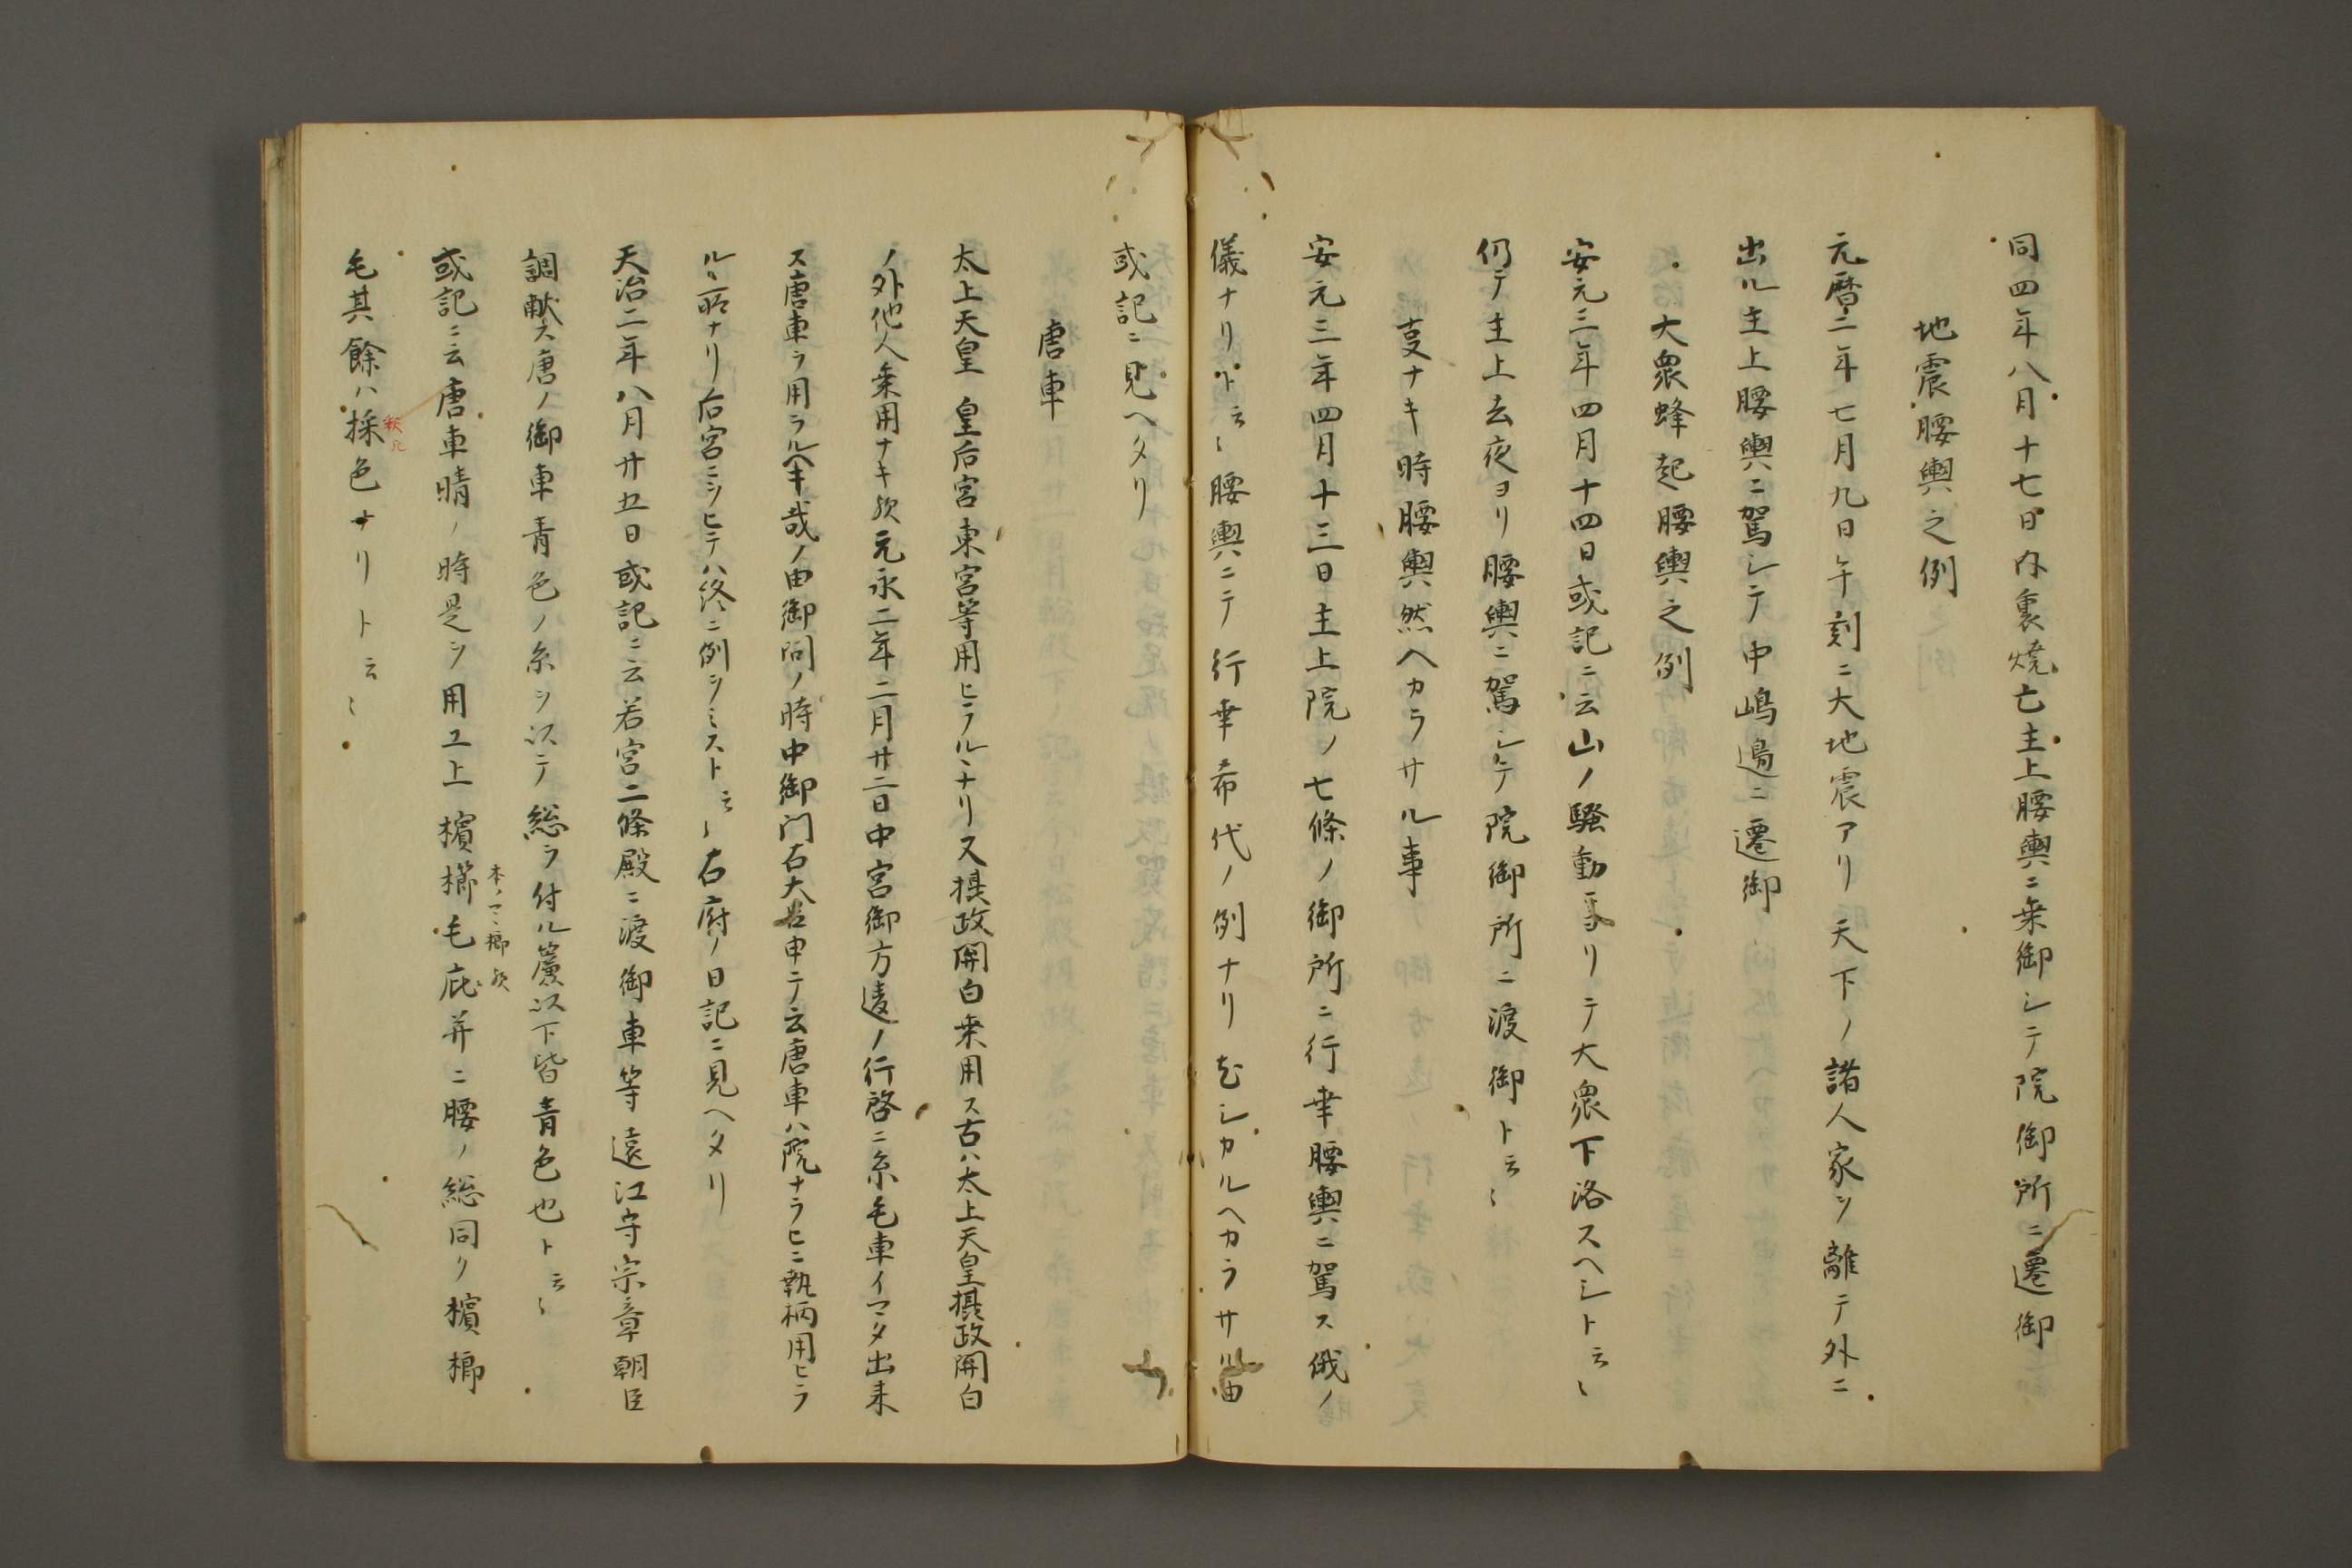 同四年八月十七日内裏焼亡主上腰輿ニ乗御シテ院御所ニ遷御
地震腰輿之例
元暦二年七月九日午刻ニ大地震アリ天下ノ諸人家ヲ離テ外ニ
出ル主上腰輿ニ駕シテ中嶋邊ニ遷御
大衆蜂起腰輿之例
安元三年四月十四日或記ニ云山ノ騒動ニヨリテ大衆下洛スヘシト云〻
仍テ主上去夜ヨリ腰輿ニ駕シテ院御所ニ渡御ト云〻
変ナキ時腰輿然ヘカラサル事
安元三年四月十三日主上院ノ七條ノ御所ニ行幸腰輿ニ駕ス俄ノ
儀ナリト云〻腰輿ニテ行幸希代ノ例ナリ尤シカルヘカラサル由
或記ニ見ヘタリ
唐車
太上天皇 皇后宮東宮等用ヒラルヽナリ又摂政関白乗用ス古ハ太上天皇摂政関白
ノ外他人乗用ナキ歟元永二年二月廿二日中宮御方違ノ行啓ニ糸毛車イマタ出来
ス唐車ヲ用ラルヘキ哉ノ由御問ノ時中御門右大臣申テ云唐車ハ院ナラヒニ執柄用ヒラ
ルヽ所ナリ后宮ニヲヒテハ終ニ例ヲミスト云〻右府ノ日記ニ見ヘタリ
天治二年八月廿五日或記ニ云若宮二條殿ニ渡御車等遠江守宗章朝臣
調献ス唐ノ御車青色ノ糸ヲ以テ総ヲ付ル簾以下皆青色也ト云〻
本ノマヽ榔歟
或記ニ云唐車晴ノ時是ヲ用ユ上檳榔毛庇并ニ腰ノ総同ク檳榔
毛其餘ハ採色ナリト云〻